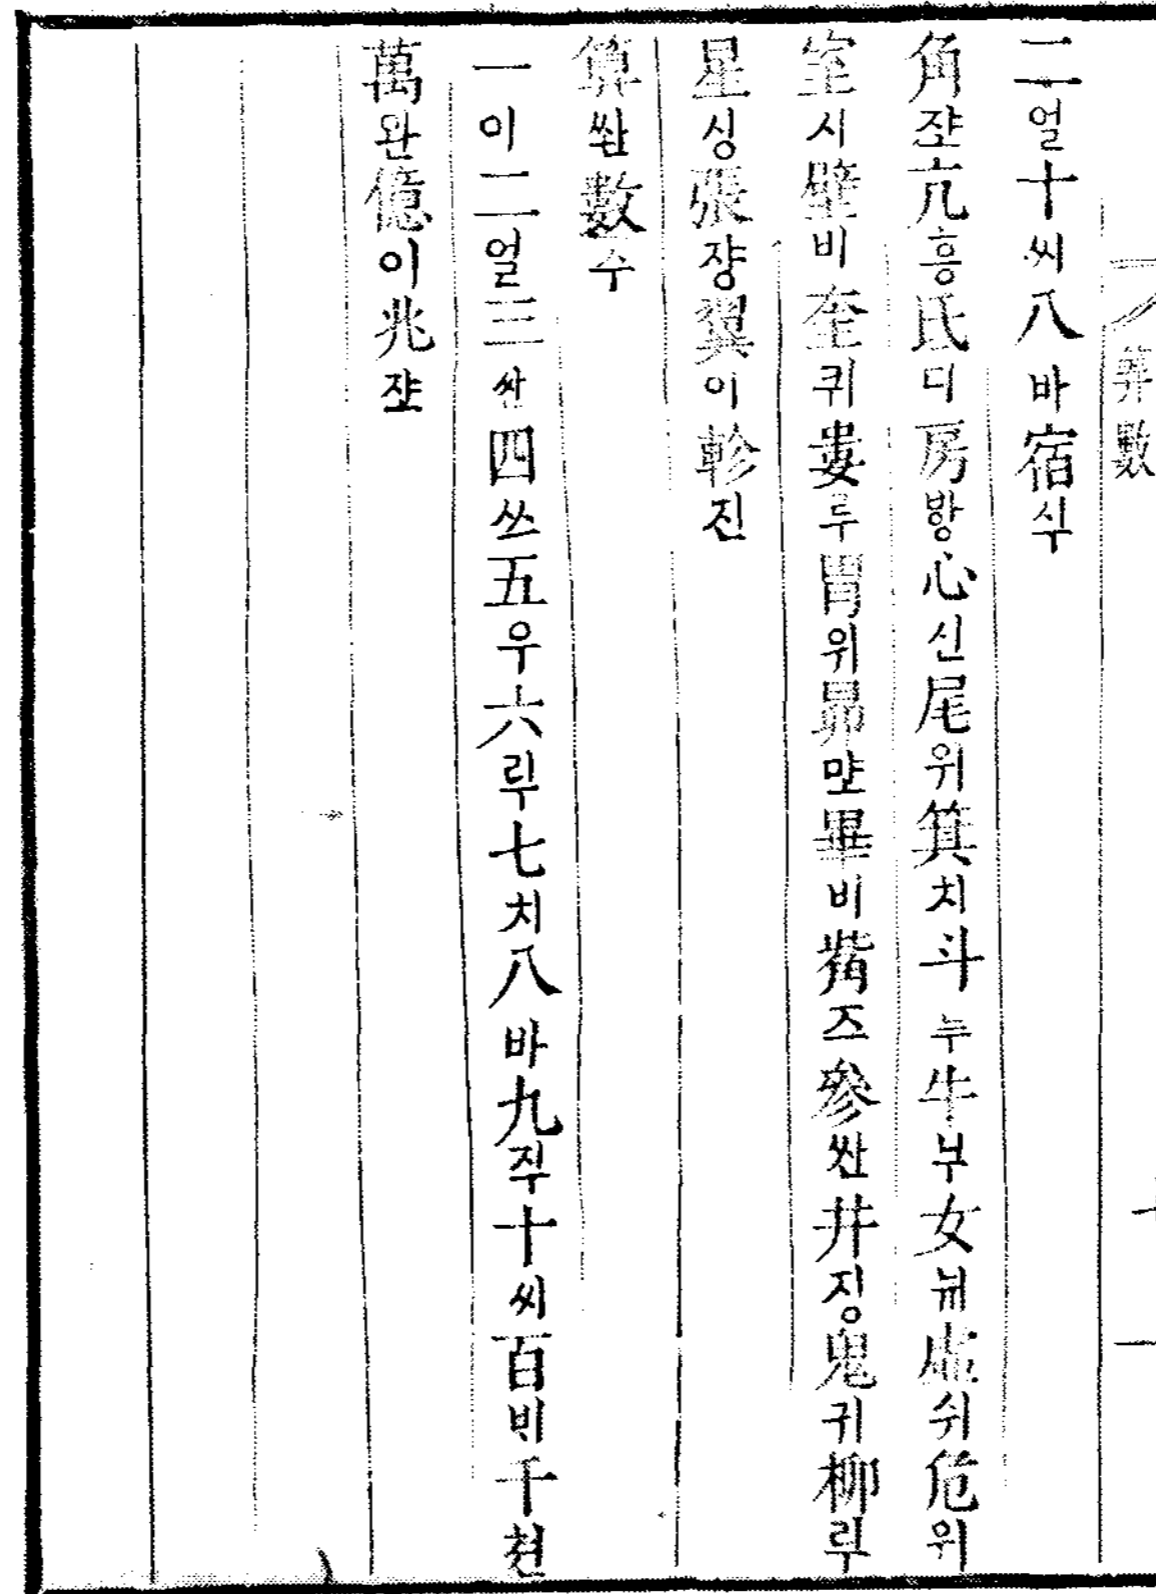 算數
二얼十씨八바宿싁
角쟢亢흥氐디房방心신尾위箕치斗두牛부女뉘虛쉬危위
室시壁비奎퀴婁루胃위昴먚畢비觜즈參싼井징鬼귀柳릭
星싱張쟝翼이軫진
算쏸數수
一이二얼三싼四쓰五우六루七치八바九쥐十씨百배千쳔
萬완億이兆쟢